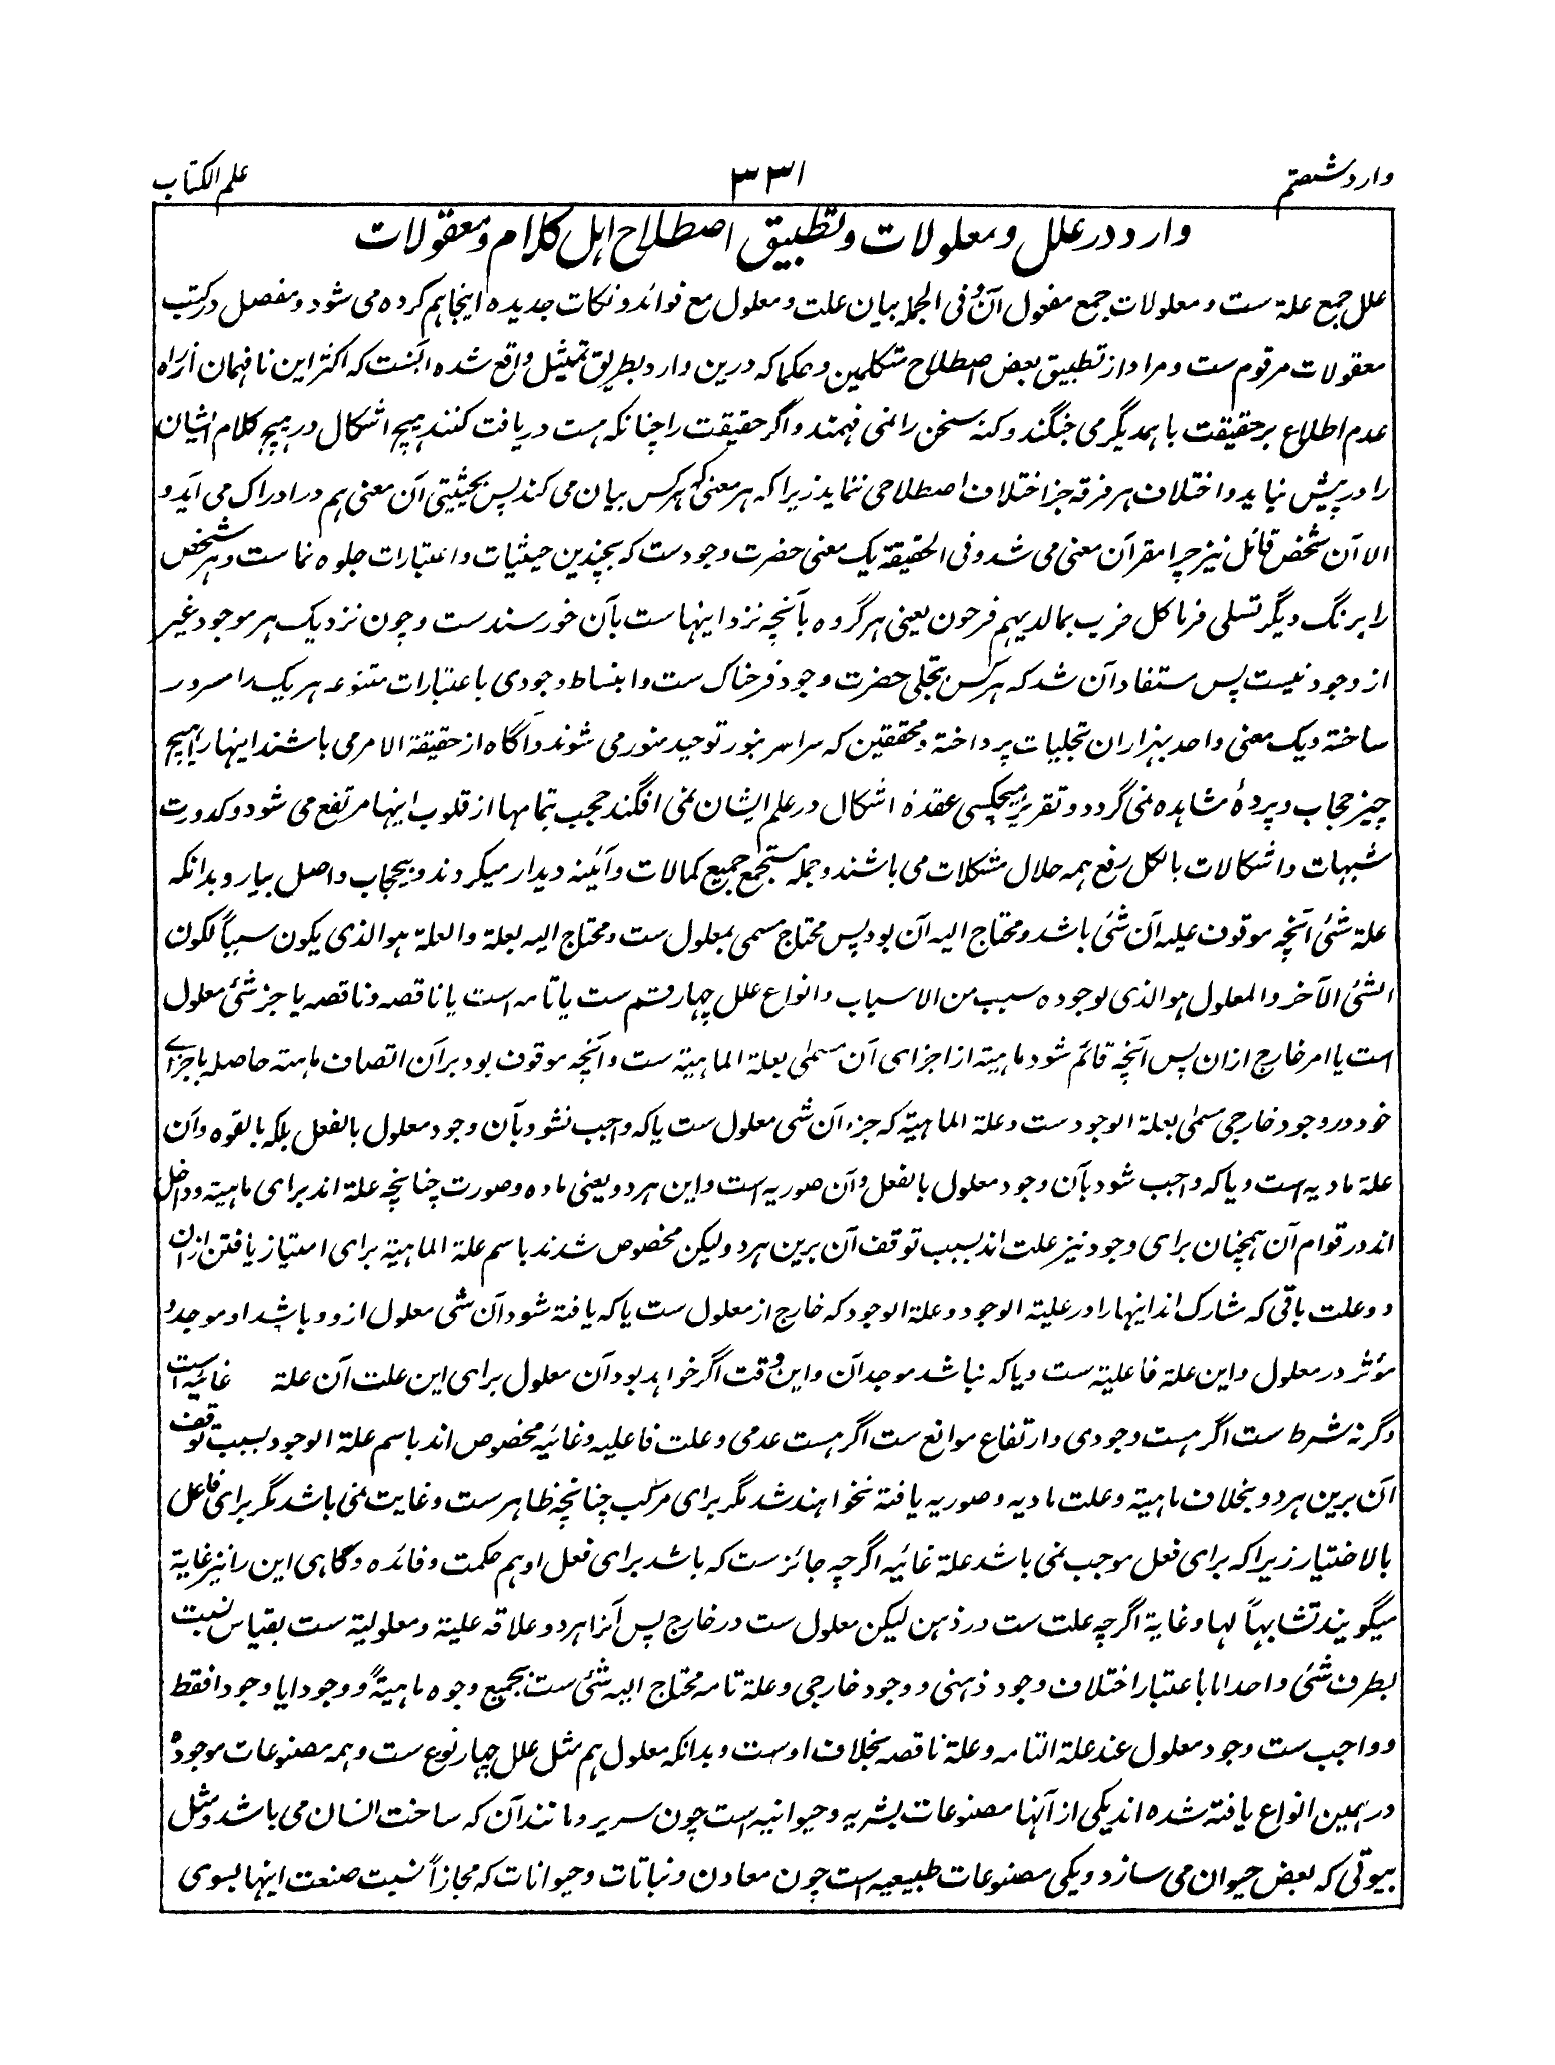 وارد شصتم
۳۳۱
علم الکتاب
وارد در علل و معلولات و تطبیق اصطلاح اہل کلام و معقولات
علل جمع علة ست و معلولات جمع مفعول آن و فی الجملہ بیان علت و معلول مع فوائد و نکات جدیدہ اینجا ہم کردہ می شود و مفصل در کتب
معقولات مرقوم ست و مراد از تطبیق بعض اصطلاح متکلمین و حکما کہ درین وارد بطریق تمثیل واقع شدہ آنست کہ اکثر این نافہمان از راہ
عدم اطلاع بر حقیقت باہمدیگر می جنگند و کنہ سخن را نمی فہمند و اگر حقیقت را چنانکہ ہست دریافت کنند ہیچ اشکال در ہیچ کلام ایشان
را در پیش نیاید و اختلاف ہر فرقہ جز اختلاف اصطلاحی ننماید زیرا کہ ہر معنی کہ ہر کس بیان می کند پس بحیثیتی آن معنی ہم در ادراک می آید و
الا آن شخص قائل نیز چرا مقر آن معنی می شد و فی الحقیقة یک معنی حضرت وجود ست کہ بچندین حیثیات و اعتبارات جلوہ نماست و ہر شخص
را برنگ دیگر تسلی فرما کل حزب بما لدیہم فرحون یعنی ہر گروہ بآنچہ نزد اینہاست بآن خورسند ست و چون نزدیک ہر موجود غیر
از وجود نیست پس مستفاد آن شد کہ ہر کس بتجلی حضرت وجود فرخناک ست و انبساط وجودی باعتبارات متنوعہ ہر یک را مسرور
ساختہ و یک معنی واحد بہزاران تجلیات پرداختہ و محققین کہ سراسر بنور توحید منور می شوند و آگاہ از حقیقة الامر می باشند اینہا را ہیچ
چیز حجاب و پردہٴ مشاہدہ نمی گردد و تقریر ہیچکسی عقدہٴ اشکال در علم ایشان نمی افگند حجب بتمامہا از قلوب اینہا مرتفع می شود و کدورت
شبہات و اشکالات بالکل رفع ہمہ حلال مشکلات می باشند و جملہ مستجمع جمیع کمالات و آئینہ دیدار میگردند و بیحجاب واصل بیار و بدانکہ
علة شئ آنچہ موقوف علیہ آن شئ باشد و محتاج الیہ آن بود پس محتاج مسمی بمعلول ست و محتاج الیہ بعلة والعلة ہو الذی یکون سبباً لکون
الشئ الآخر والمعلول ہو الذی لوجودہ سبب من الاسباب و انواع علل چہار قسم ست یا تامہ است یا ناقصہ و ناقصہ یا جز شئ معلول
است یا امر خارج ازان پس آنچہ قائم شود ماہیة از اجزای آن مسمیٰ بعلة الماہیة ست و آنچہ موقوف بود بر آن اتصاف ماہیتہ حاصلہ باجزاے
خود در وجود خارجی مسمیٰ بعلة الوجود ست و علة الماہیة کہ جزء آن شی معلول ست یا کہ واجب نشود بآن وجود معلول بالفعل بلکہ بالقوہ و آن
علة مادیہ است و یا کہ واجب شود بآن وجود معلول بالفعل و آن صوریہ است و این ہر دو یعنی مادہ و صورت چنانچہ علة اند برای ماہیة و داخل
اند در قوام آن ہمچنان برای وجود نیز علت اند بسبب توقف آن برین ہر دو لیکن مخصوص شدند باسم علة الماہیة برای امتیاز یافتن ازان
دو علت باقی کہ شارک اند اینہا را در علیة الوجود و علة الوجود کہ خارج از معلول ست یا کہ یافتہ شود آن شی معلول ازو و باشد او موجد و
مؤثر در معلول و این علة فاعلیة ست و یا کہ نباشد موجد آن و این وقت اگر خواہد بود آن معلول برای این علت آن علة غائیہ است
و گر نہ شرط ست اگر ہست وجودی و ارتفاع موانع ست اگر ہست عدمی و علت فاعلیہ و غائیہ مخصوص اند باسم علة الوجود بسبب توقف
آن برین ہر دو بخلاف ماہیة و علت مادیہ و صوریہ یافتہ نخواہند شد مگر برای مرکب چنانچہ ظاہر ست و غایت نمی باشد مگر برای فاعل
بالاختیار زیرا کہ برای فعل موجب نمی باشد علة غائیہ اگرچہ جائز ست کہ باشد برای فعل او ہم حکمت و فائدہ و گاہی این را نیز غایة
میگویند تشابہاً لہا و غایة اگرچہ علت ست در ذہن لیکن معلول ست در خارج پس آنرا ہر دو علاقہ علیة و معلولیة ست بقیاس نسبت
بطرف شئ واحد اما باعتبار اختلاف وجود ذہنی و وجود خارجی و علة تامہ محتاج الیہ شئ ست بجمیع وجوہ ماہیةً و وجودا یا وجودا فقط
و واجب ست وجود معلول عند علة التامہ و علة ناقصہ بخلاف اوست و بدانکہ معلول ہم مثل علل چہار نوع ست و ہمہ مصنوعات موجودہ
در ہمین انواع یافتہ شدہ اند یکی از آنہا مصنوعات بشریہ و حیوانیہ است چون سریر و مانند آن کہ ساخت انسان می باشد و مثل
بیوتی کہ بعض حیوان می سازد و یکی مصنوعات طبیعیہ است چون معادن و نباتات و حیوانات کہ مجازاً نسبت صنعت اینہا بسوی